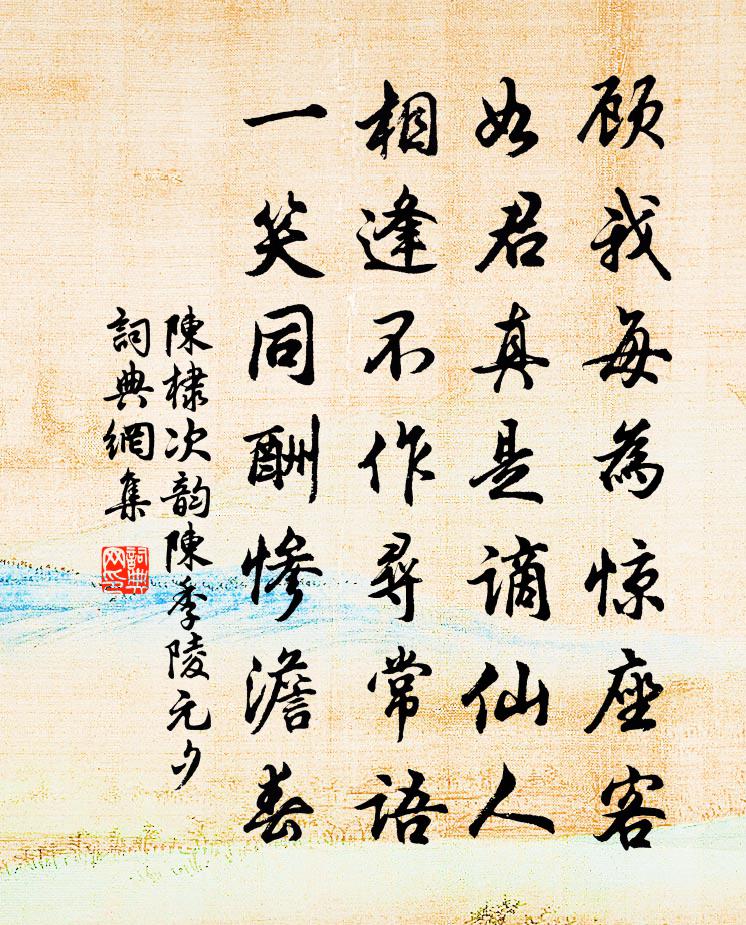 顾我每為惊座客
如君真是谪仙人
相逢不作尋常语
一笑同酬惨澹春
陳棣次韵陳季陵元夕
詞典網集